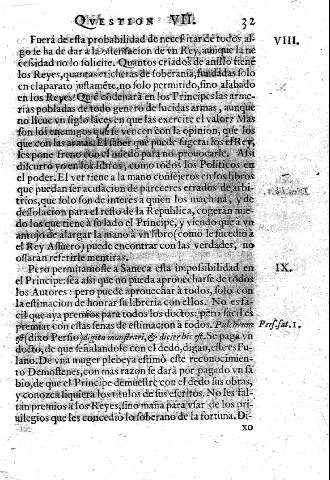 QVESTION VII. 32
VIII.
Fuera de esta probabilidad de necesitar de todos al-
go se ha de dar a la ostentacion de vn Rey, aunque la ne
cesidad no lo solicite. Quantos criados de anillo tienē
los Reyes, quantas etichetas de soberania, fundadas solo
en el aparato justamēte, no solo permitido, sino alabado
en los Reyes! Quiē cōdenarà en los Principes las arme-
rias pobladas de todo genero de lucidas armas, aunque
no lleue vn siglo lances en que las exercite el valor? Mas
son los enemigos que se vencen con la opinion, que los
que con las armas. El saber que puede sugetar los el Rey,
les pone freno con el miedo para no prouocarle. Assi
discurro yo en los libros, como todos los Politicos en
el poder. El ver tiene a la mano consejeros en los libros
que puedan ser acusacion de pareceres errados de arbi-
trios, que solo son de interes a quien los machina, y de
desolacion para el resto de la Republica, cogeràn mie-
do los que tiene a su lado el Principe, y viendo que a vn
antojo de alargar la mano à vn libro (como le sucedio à
el Rey Assuero) puede encontrar con las verdades, no
ossaràn referirle mentiras.
IX.
Pero permitamosle a Saneca esta impossibilidad en
el Principe: sea assi que no pueda aprouecharse de todos
los Autores: pero puede aprouechar à todos, solo con
la estimacion de honrar su libreria con ellos. No es fa-
cil que aya premios para todos los doctos: pero facil es
premiar con estas señas de estimacion à todos. Pulchrum Pers. sat. 1.
est (dixo Persio) digito monstrari, & dicier hic est. Se paga vn
docto, de que señalandole con el dedo, digan, este es Fu-
lano. De vna muger plebeya estimò este reconocimien-
to Demostenes, con mas razon se darà por pagado vn sa
bio, de que el Principe demuestre con el dedo sus obras,
y conozca siquiera los titulos de sus escritos. No les fal-
tan premios à los Reyes, sino maña para vsar de los pri-
uilegios que les concediò lo soberano de la fortuna. Di-
xo